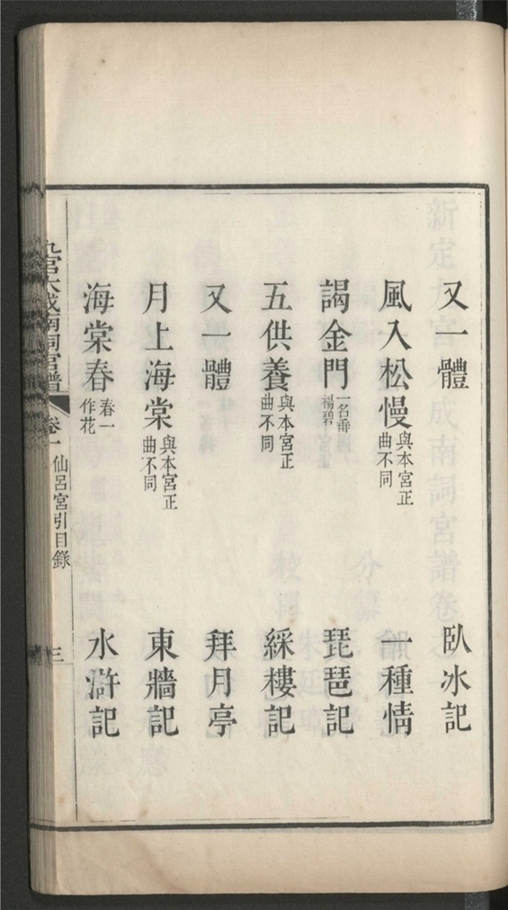 又一體 臥冰記
風入松慢 與本宮正曲不同 一種情
謁金門 一名垂楊碧 琵琶記
五供養 與本宮正曲不同 綵樓記
又一體 拜月亭
月上海棠 與本宮正曲不同 東牆記
海棠春 春一作花 水滸記
九宮大成南詞宮譜 卷一 仙呂宮引目錄 三